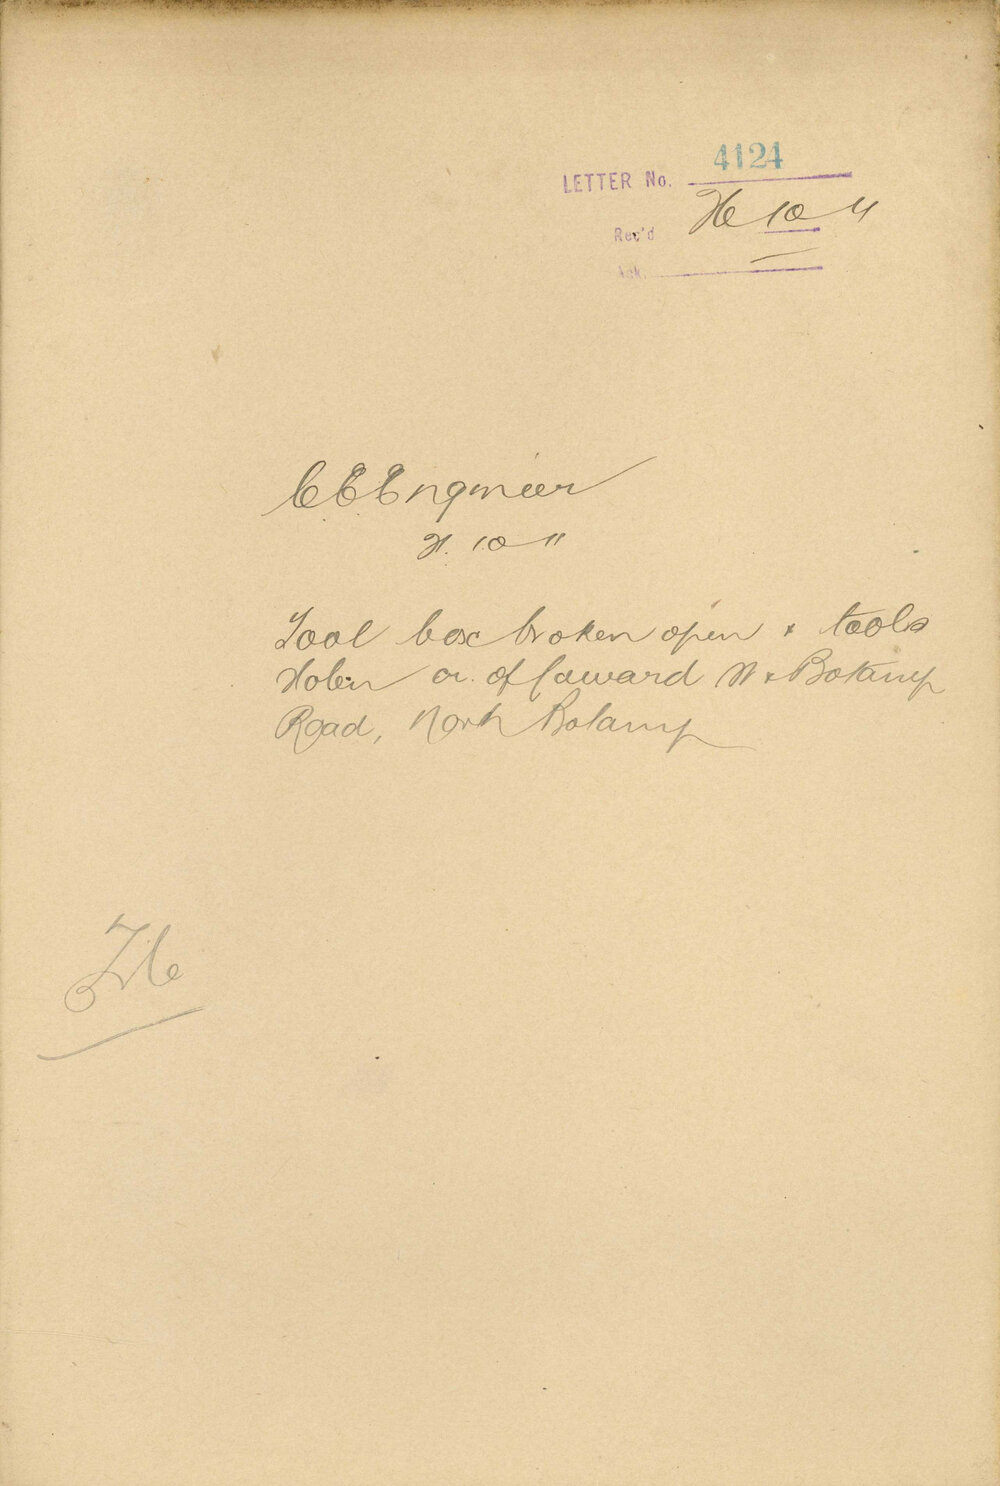 4124
LETTER No.
Rec'd 10 11
Ack.
C E Engineer
10 11
Tool box broken open & tools
stolen cr. of Coward St & Botany
Road, North Botany
File